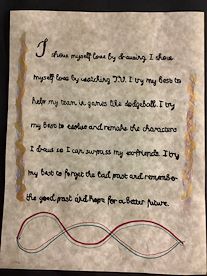 I show myself love by drawing. I show
myself love by watching T.V. I try my best to
help my team in games like dodgeball. I try
my best to evolve and remake the characters
I draw so I can surpass my exfriends. I try
my best to forget the bad past and remember
the good past and hope for a better future.